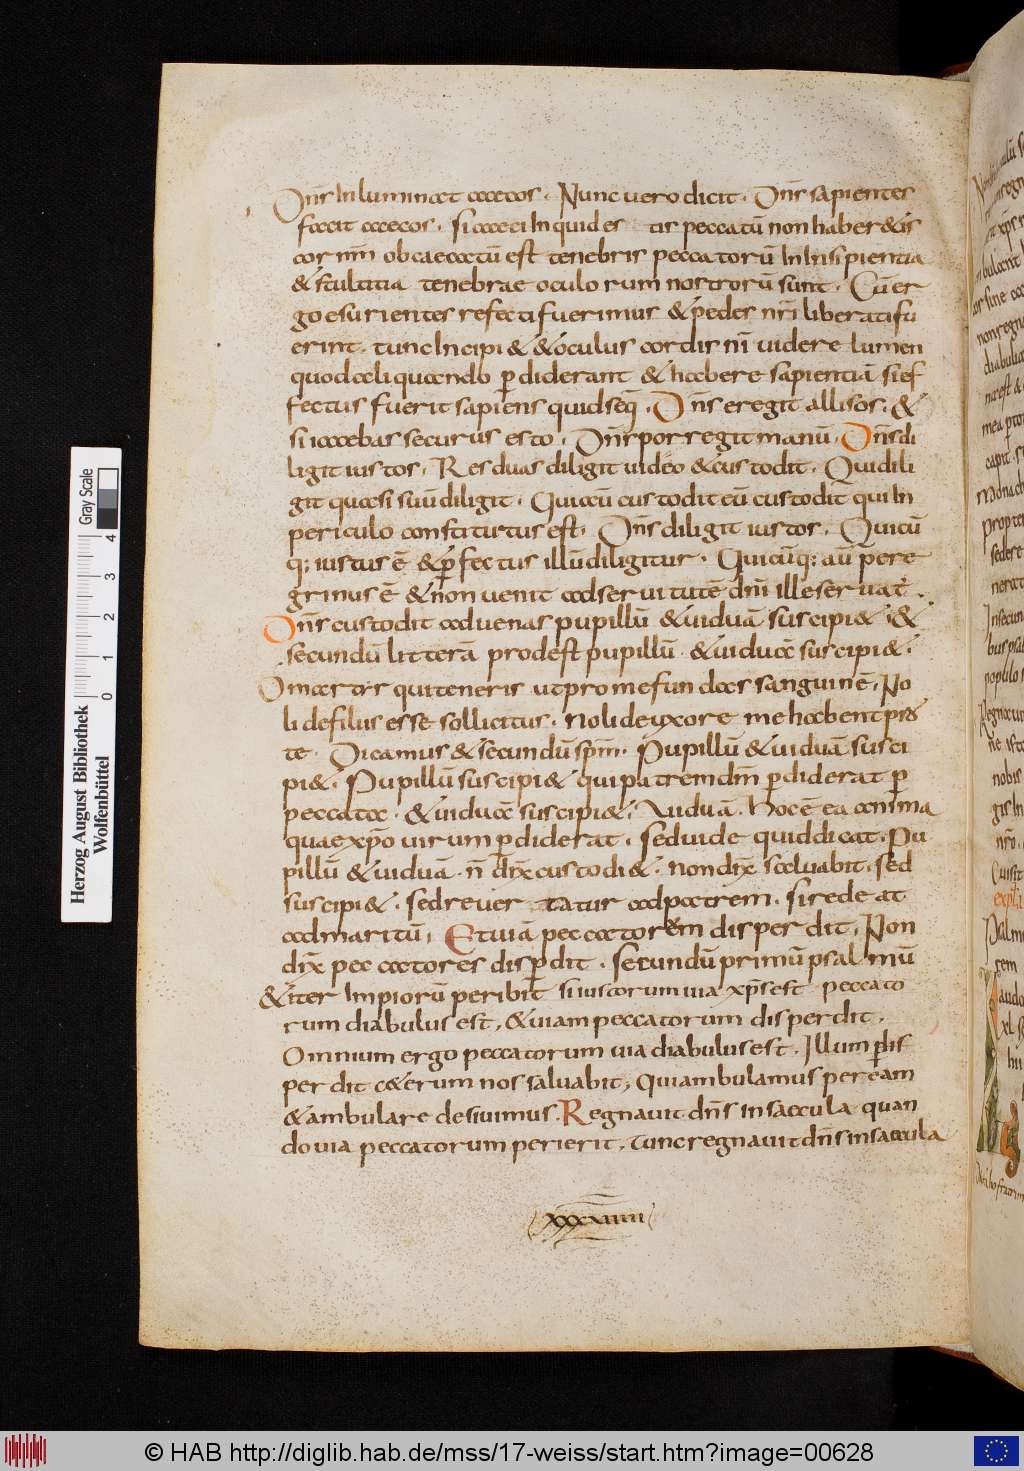 Dn̄s Inluminat caecos . Nunc uero dicit . Dn̄s sapientes
facit caecos . si caeci Inquid estis peccatū non haber&is
cor nr̄m obcaecatū est tenebris peccatorū Ininsipientia
& stultitia tenebrae oculorum nostrorū sunt . Cū er
go esurientes refecti fuerimus & pedes nr̄i liberati fu
erint . tunc Incipi& & oculus cordis nr̄i uidere lumen
quod aliquando p̄diderant & habere sapientiā si ef
fectus fuerit sapiens quid seq; . Dn̄s eregit allisos . &
si iacebas securus esto . Dn̄s porregit manū . Dn̄s di
ligit iustos . Res duas diligit uideo & custodit . Qui dili
git quasi suū diligit . Qui aū custodit eū custodit qui In
periculo constitutus est . Dn̄s diligit iustos . Quicū
q; iustus ē & p̄fectus illū diligitur . Quicūq; aū pere
grinus ē & non uenit ad seruitutē dn̄i ille seruat .
Dn̄s custodit aduenas pupillū & uiduā suscipi& . &
secundū litterā prodest pupillū & uiduā suscipi& .
O mater quiteneris ut pro me fundas sanguinē . No
li de filus esse sollicitus . noli de uxore me habent pr̄s
te . Dicamus & secundū spm̄ . Pupillū & uiduā susci
pi& . Pupillū suscipi& qui patrem dm̄ p̄diderat p̄
peccata . & uiduā suscipi& . Uiduā . hoc ē ea anima
quae xp̄o uirum p̄diderat . sed uide quid dicat . Pu
pillū & uiduā . n̄ dix̄ custodi& . non dix̄ saluabit . sed
suscipi& . sed reuertatur ad patrem . si redeat
ad maritū . Et uiā peccatorem disperdit . Non
dix̄ peccatores disp̄dit . secundū primū psalmū
& iter Impiorū peribit si iustorum uia xp̄s est peccato
rum diabulus est . & uiam peccatorum disperdit .
Omnium ergo peccatorum uia diabulus est . Illum p̄dis
perdit c&erum nos saluabit , Qui ambulamus per eam
& ambulare desiuimus . Regnauit dn̄s in saecula quan
do uia peccatorum perierit , tunc regnauit dn̄s in saecula
xxxxiiii
Herzog August Bibliothek
Wolfenbüttel
Gray Scale
0 1 2 3 4
© HAB http://diglib.hab.de/mss/17-weiss/start.htm?image=00628